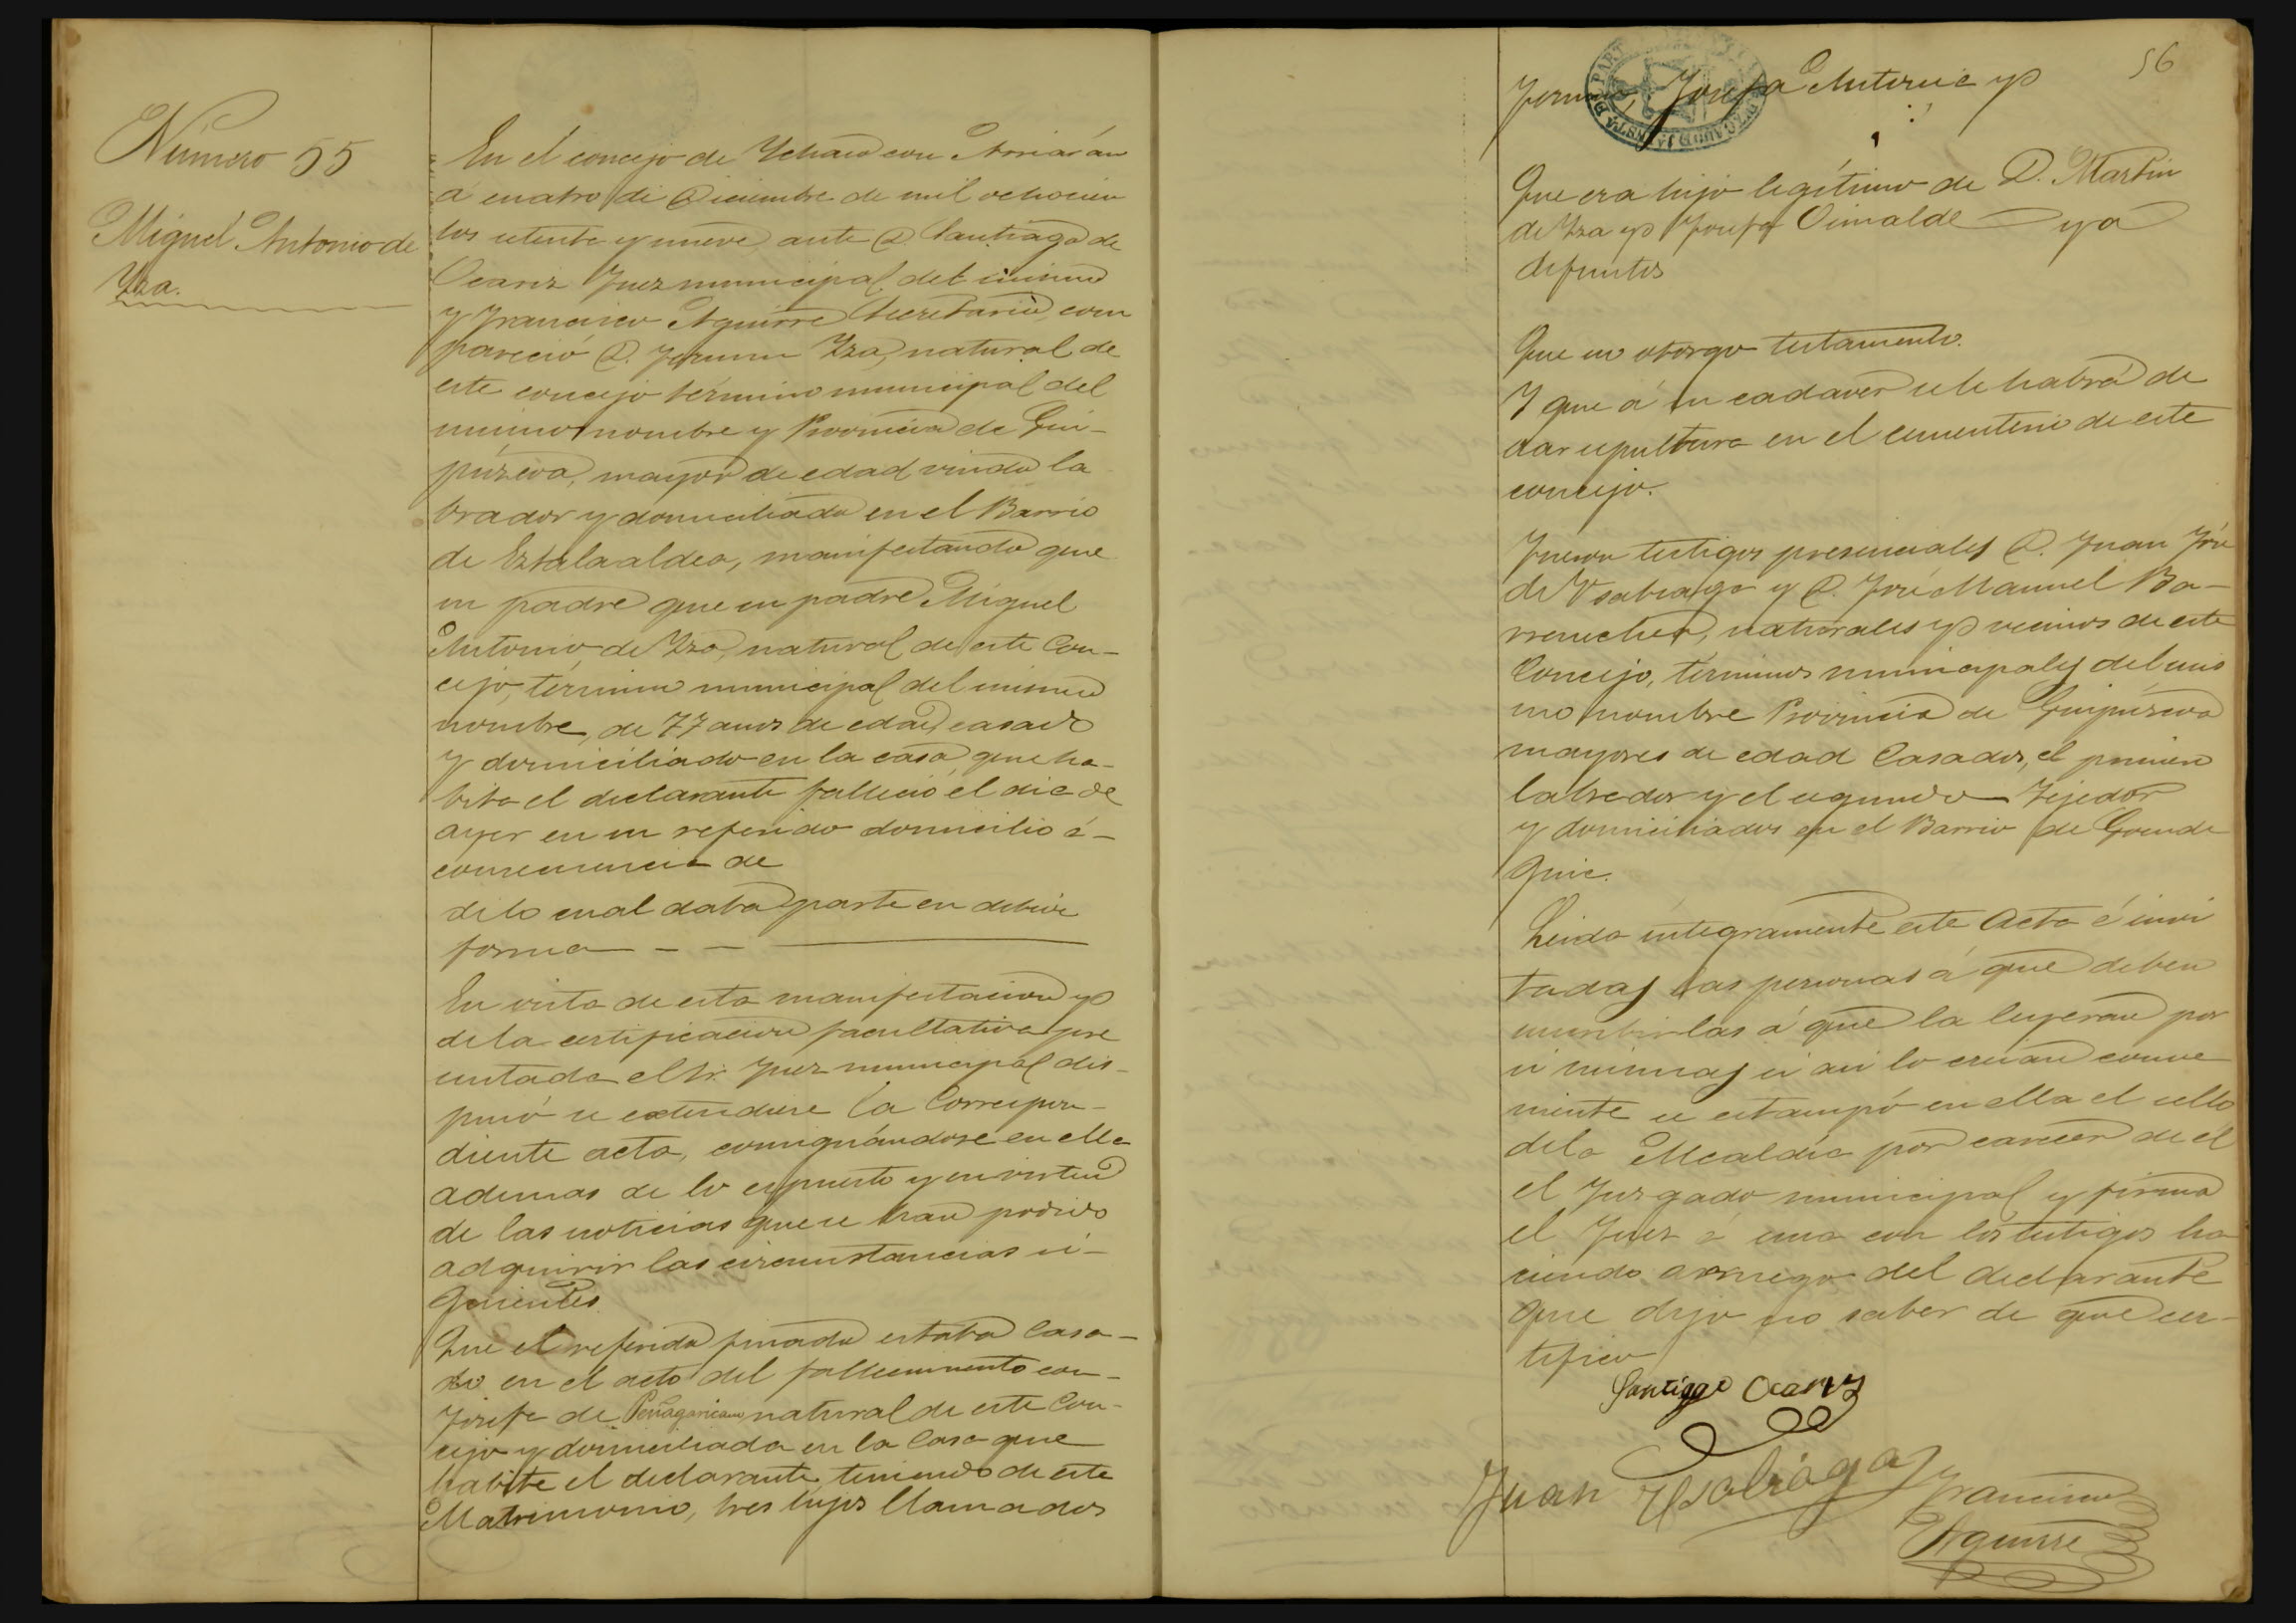 Número 55
Miguel Antonio de
Yza.
En el concejo de Ychaso con Arriarán
á cuatro de Diciembre de mil ochocien
tos setenta y nueve ante D. Santiago de
Ocariz Juez municipal del mismo
y Francisco Aguirre Secretario, com
pareció D. Fermin Yza, natural de
este concejo término municipal del
mismo nombre y Provincia de Gui-
púzcoa, mayor de edad viudo la
brador y domiciliado en el Barrio
de manifestando que
su padre que su padre Miguel
Antonio de Yza, natural de este Con-
cejo, término municipal del mismo
nombre, de 77 anos de edad, casado
y domiciliado en la casa que ha-
bita el declarante falleció el dia de
ayer en su referido domicilio á
consecuencia de
de lo cual daba parte en debida
forma
En vista de esta manifestacion y
de la certificacion facultativa pre
sentada el Sr. Juez municipal dis-
puso se extendiese la Correspon-
diente acta, consignándose en ella
ademas de lo espuesto y en virtud
de las noticias que se han podido
adquirir las circunstancias si-
guientes.
Que el referido finado estaba Casa-
do en el acto del fallecimiento con
Josefa de Peñagaricano natural de este Con-
cejo y domiciliada en la Casa que
habita el declarante teniendo de este
Matrimonio, tres hijos llamados
56
Fermin, Josefa Antonia y
Que era hijo legítimo de D. Martin
de Yza y Josefa Oimalde ya
difuntos
Que no otorgo testamento.
Y que á su cadaver se le habrá de
dar sepultura en el cementerio de este
concejo.
Fueron testigos presenciales D. Juan José
de Usabiaga y D. José Manuel Ba-
rrenechea, naturales y vecinos de este
Concejo, términos municipales del mis
mo nombre Provincia de Guipúzcoa
mayores de edad Casados, el primero
labrador y el segundo Tejedor
y domiciliados en el Barrio de
Leida integramente este Acta é invi
tadas las personas á que deben
suscribirlas á que la leyeran por
si mismas si asi lo creian conve
niente se estampó en ella el sello
de la Alcaldía por carecer de él
el Juzgado municipal y firma
el Juez á una con los testigos ha
ciendo a ruego del declarante
que dijo no saber de que cer-
tifico
Santiago Ocariz
Juan Usabiaga
Francisco
Aguirre